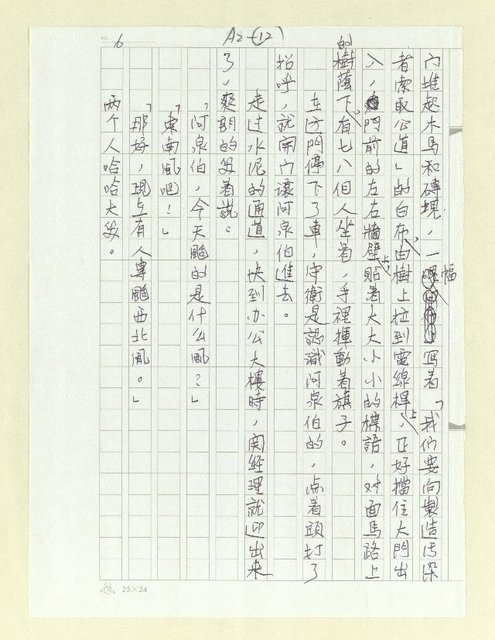 A2-(12)
6
门堆起木馬和磚塊，一幅写着「我们要向製造污染
者索取公道」的白布由樹上拉到電線桿上，正好擋住大門出
入，門前的左右牆壁上貼着大大小小的標語，对面馬路上
的樹蔭下有七八個人坐着，手裡揮動着旗子。
在边門停下了車，守衛是認識阿泉伯的，点着頭打了
招呼，就開门讓阿泉伯進去。
走过水泥的通道，快到办公大樓時，経理就迎出來
了，爽朗的笑着說。
「阿泉伯，今天颳的是什么風？」
「東南風吧！」
「那好，現在有人專颳西北風。」
兩个人哈哈大笑。
25×24